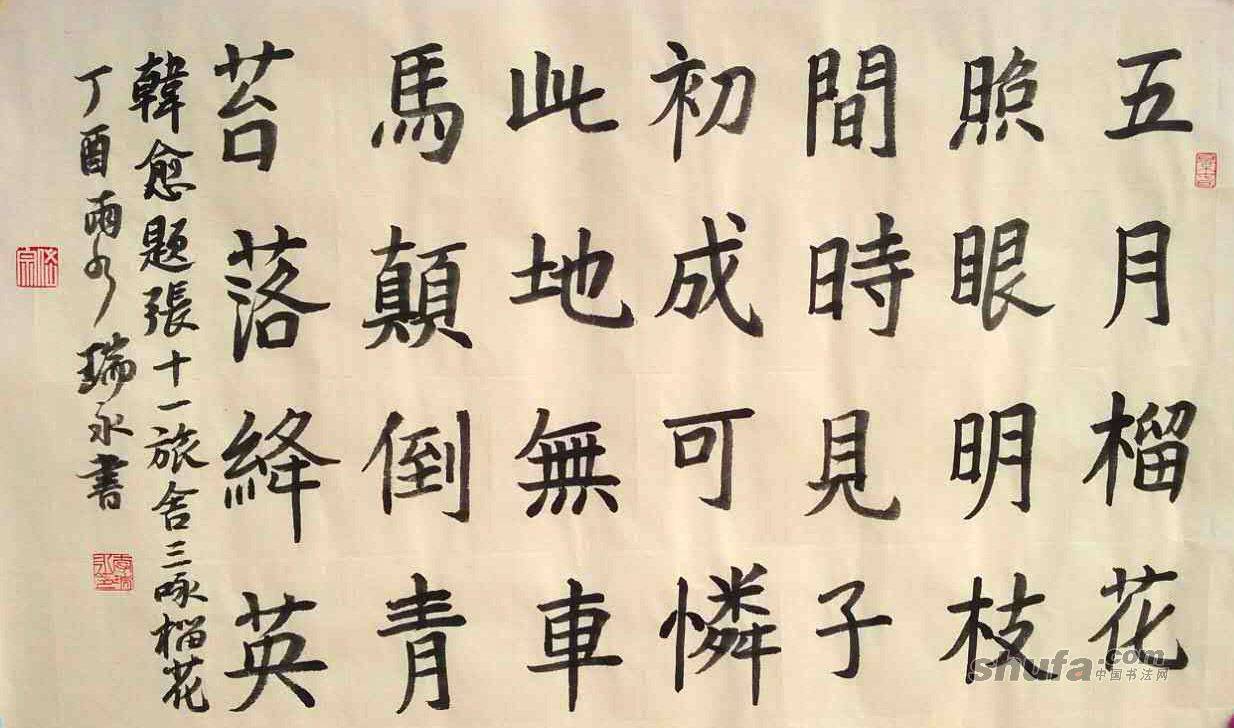 五月榴花
照眼明枝
間時見子
初成可憐
此地無車
馬顛倒青
苔落絳英
韓愈題張十一旅舍三咏榴花
丁酉雨水瑞永書
shufa.com
中国书法网